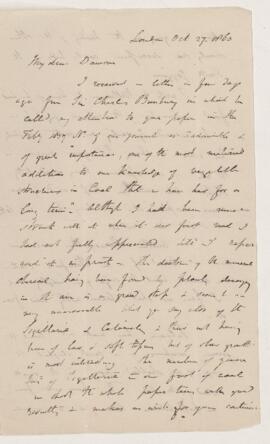 London Oct 27. 1860
My dear Dawson
I received a letter a few days
ago from Sir Charles Bunbury in which he
called my attention to your paper in the
Feby 1859 No of our journal as "admirable &
of great importance, one of the most material
additions to our knowledge of vegetable
structures in Coal that we have had for a
long time". Altho I had been much
struck with it when it was first read I
had not fully appreciated till I
read it in print. The doctrine of the mineral
charcoal having been formed by plants decaying
in the air is a grand step & seems
very unanswerable. What you say also of the
Sigillaria & Calamites & their not having
is most interesting. The number of
of Sigillaria in one foot of coal
in short the whole paper teems with good
results & makes me wish for your continu-